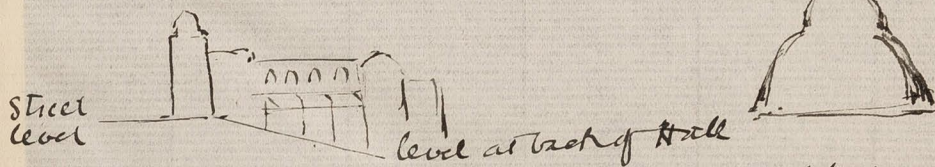 Street
level
level at back of Hall